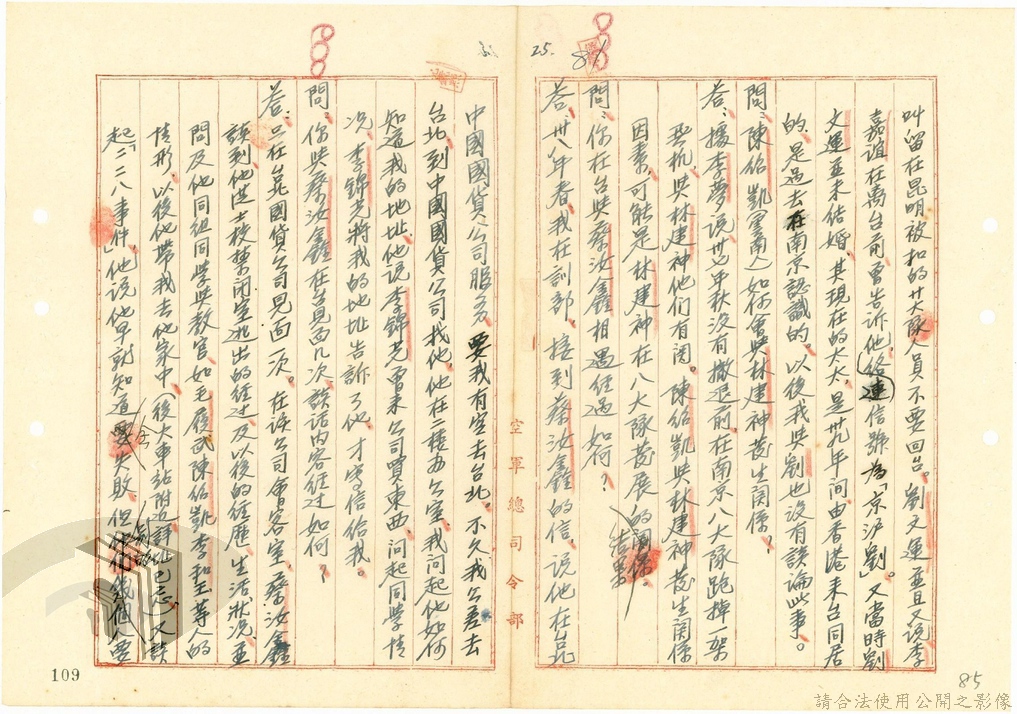 叫留在昆明被扣的廿大隊人員不要回台。劉文運並且又說李
嘉誼在离台前、曾告訴他、絡連信號為「京沪劉」。又當時劉
文運並未結婚、其現在的太太、是卅九年間由香港來台同居
的、是過去在南京認識的。以後我與劉也沒有談論此事。
問:陳紹凱(軍南)如何會與林建神發生關係?
答:據李夢說卅七年秋沒有撤退前、在南京八大隊跑掉一架
飛机、與林建神他們有関。陳紹凱與林建神發生関係
因素、可能是林建神在八大隊發展的結果。
問:你在台與蔡汝鑫相遇经過如何?
答、卅八年春、我在訓部、接到蔡汝鑫的信、說他在台北
中國國貨公司服务、要我有空去台北。不久我公差去
台北、到中國國貨公司找他、他在二樓办公室、我问起他如何
知道我的地址、他說李錦尧曾来公司買東西、问起同學情
况、李錦尧將我的地址告訴了他、才寫信给我。
問。你與蔡汝鑫在台見面几次、談話内容经过如何?
答:只在台北國貨公司見面一次。在该公司會客室、蔡汝鑫
談到他從士校禁闭室逃出的经过、及以後的经歷、生活狀况、並
問及他同组同學與教官、如毛履武陳紹凱李和玉等人的
情形、以後他帶我去他家中(後火車站附近詳址已忘)又談
起「二二八事件」他說他早就知道會大敗、但他们幾個人要
空軍總司令部
109
85
25.
請合法使用公開之影像